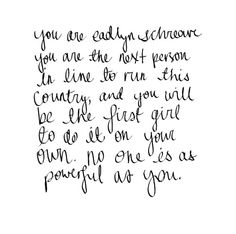 you are eadlyn schreave
you are the next person
in line to run this
country, and you will
be the first girl
to do it on your
own. no one is as
powerful as you.